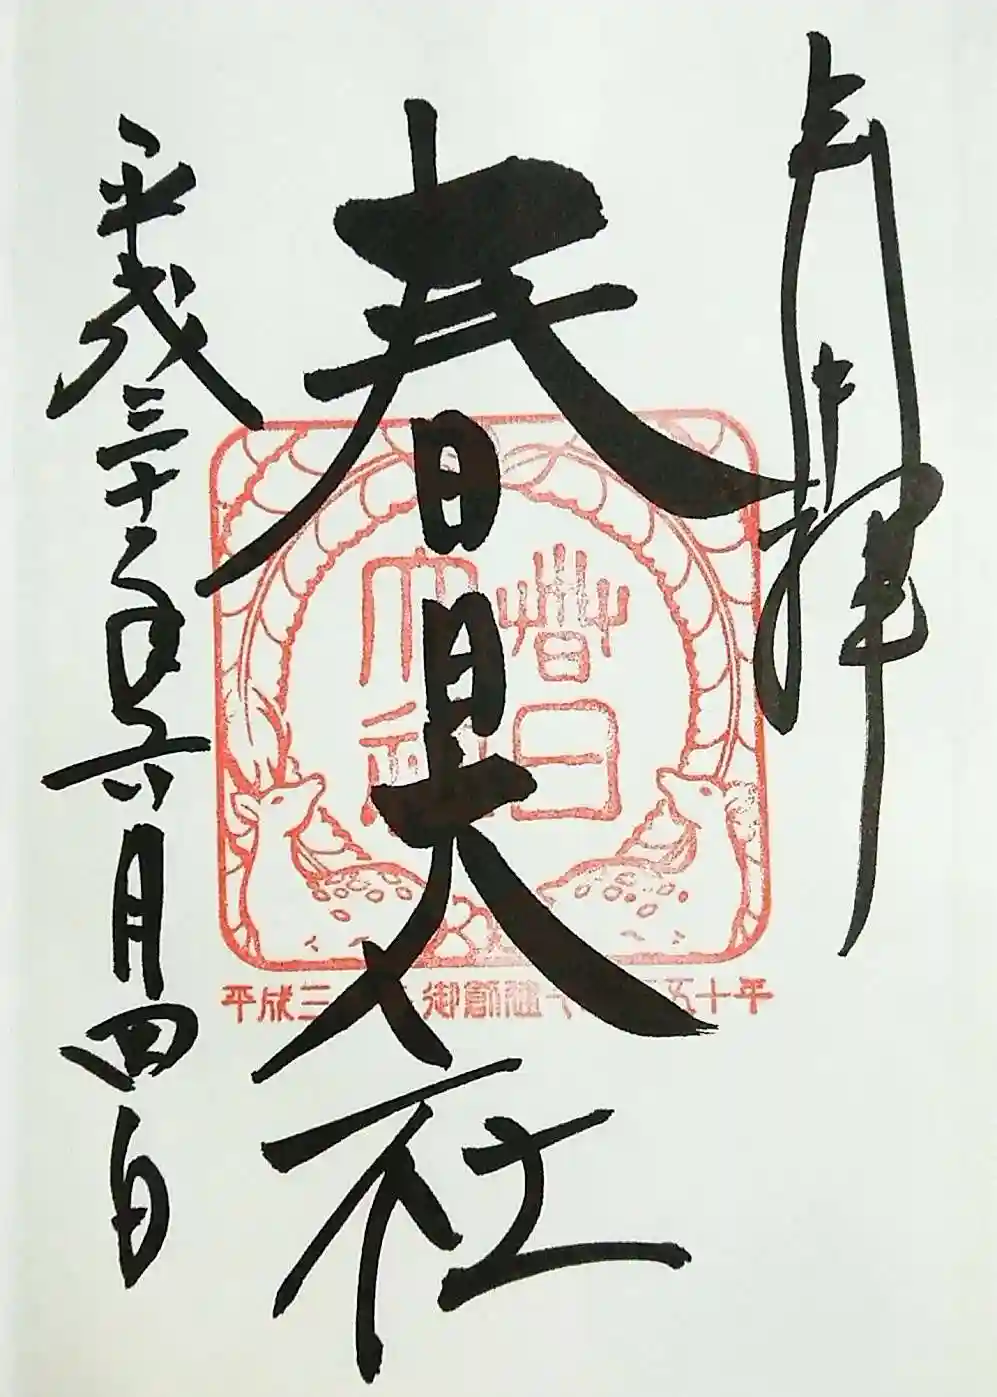 奉拝
春日大社
平成三十年六月四日
春日
大社
平成三十年 御創建千二百五十年